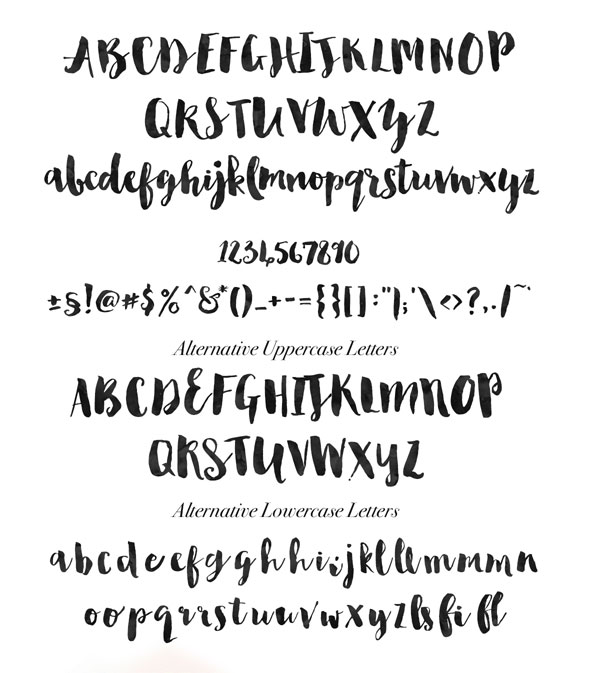 ABCDEFGHIJKLMNOP
QRSTUVWXYZ
abcdefghijklmnopqrstuvwxyz
1234567890
±§!@#$%^&*()_+-={}[]:"|;'\<>?,./~`
Alternative Uppercase Letters
ABCDEFGHIJKLMNOP
QRSTUVWXYZ
Alternative Lowercase Letters
abcdeefgghhiijklllmmmn
oopqrrrstuuvwxyzlsfifl